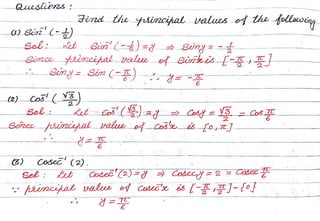 Questions :
Find the principal values of the following
(1) Sin⁻¹ (-1/2)
Sol : Let Sin⁻¹(-1/2) = y ⇒ Sin y = -1/2
Since principal value of Sin⁻¹x is [-π/2, π/2]
∴ Sin y = Sin (-π/6) ∴ y = -π/6
(2) Cos⁻¹ (√3/2)
Sol : Let Cos⁻¹(√3/2) = y ⇒ Cos y = √3/2 = Cos π/6
Since principal value of Cos⁻¹x is [0, π]
∴ y = π/6
(3) Cosec⁻¹ (2).
Sol : Let Cosec⁻¹(2) = y ⇒ Cosec y = 2 = Cosec π/6
∵ principal value of Cosec⁻¹x is [-π/2, π/2] - {0}
∴ y = π/6